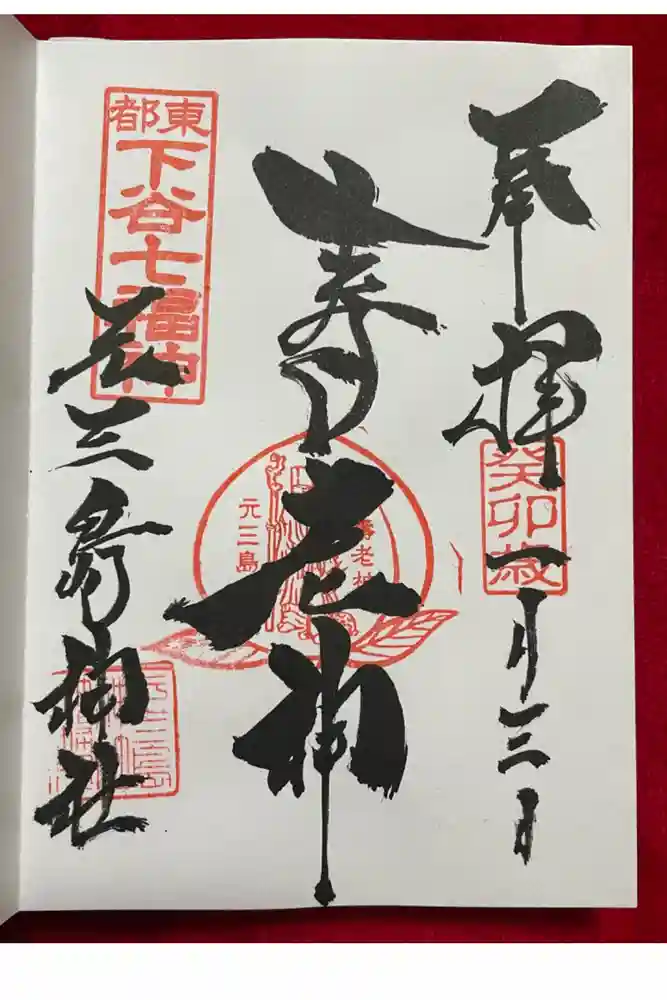 奉拝
癸卯歳
一月三日
寿老神
元三島
寿老神
東都
下谷七福神
元三島神社